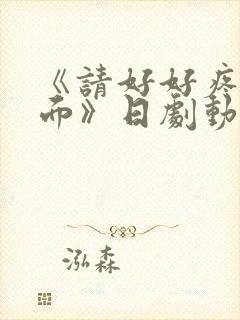 《請好好疼
而》日劇動
泓森